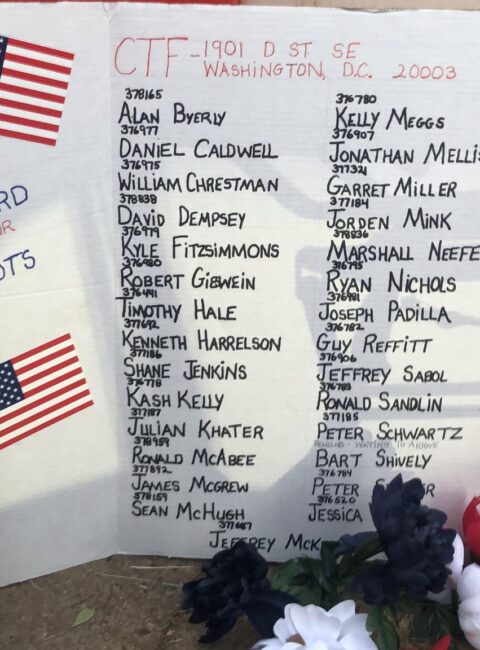 CTF - 1901 D ST SE
WASHINGTON, D.C. 20003
378165
ALAN BYERLY
376977
DANIEL CALDWELL
376975
WILLIAM CHRESTMAN
378838
DAVID DEMPSEY
376979
KYLE FITZSIMMONS
376980
ROBERT GIEWEIN
376441
TIMOTHY HALE
377692
KENNETH HARRELSON
377186
SHANE JENKINS
376778
KASH KELLY
377187
JULIAN KHATER
378959
RONALD MCABEE
377892
JAMES MCGREW
378159
SEAN MCHUGH
377687
JEFFREY MCK
376780
KELLY MEGGS
376907
JONATHAN MELLIS
377321
GARRET MILLER
377184
JORDEN MINK
378836
MARSHALL NEEFE
376795
RYAN NICHOLS
376981
JOSEPH PADILLA
376782
GUY REFFITT
376906
JEFFREY SABOL
376783
RONALD SANDLIN
377185
PETER SCHWARTZ
PENDING - WAITING TO ARRIVE
BART SHIVELY
376784
PETER
376520
JESSICA
RD
R
OTS